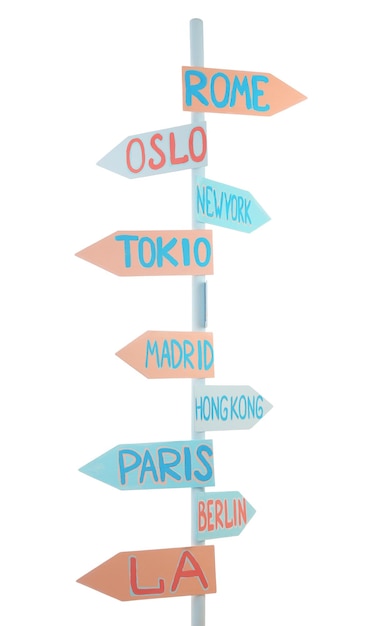 ROME
OSLO
NEWYORK
TOKIO
MADRID
HONGKONG
PARIS
BERLIN
LA